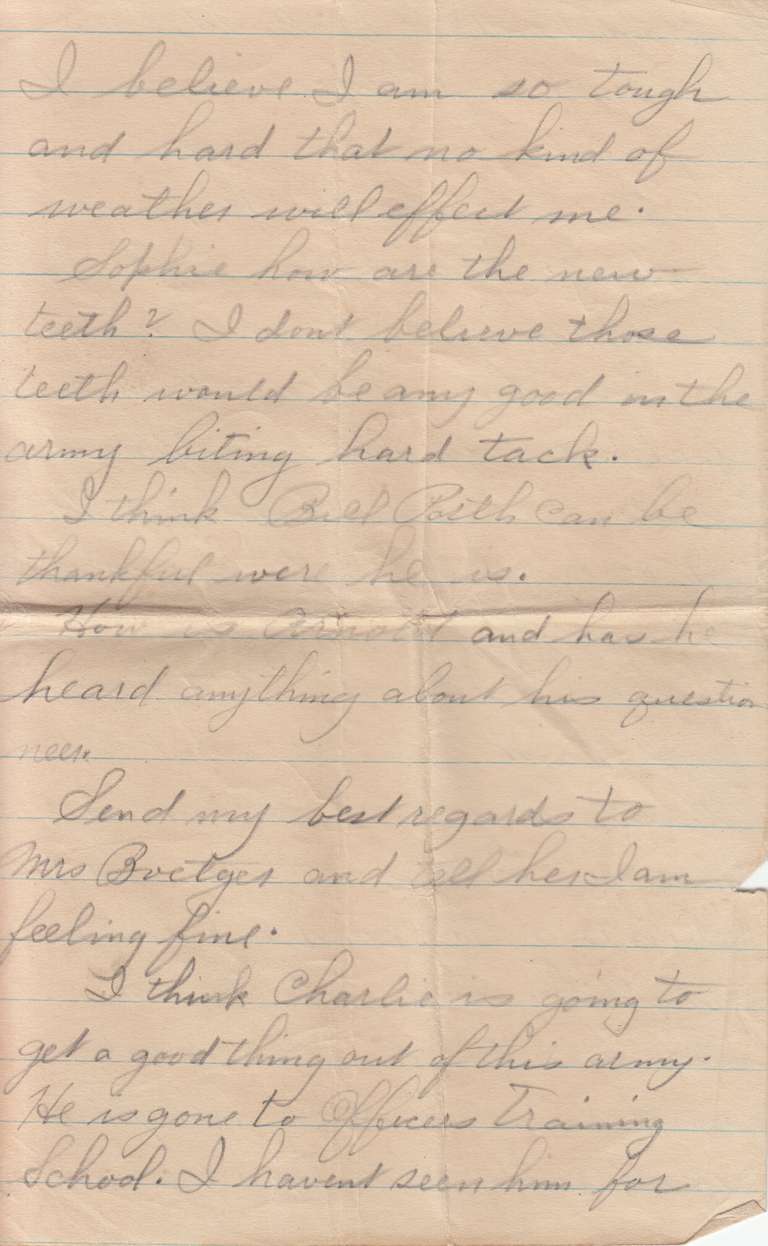 I believe I am so tough
and hard that no kind of
weather will effect me.
Sophie how are the new
teeth? I dont believe those
teeth would be any good in the
army biting hard tack.
I think Bill can be
thankful were he is.
How is Arnold and has he
heard anything about his question
neer.
Send my best regards to
Mrs Boetger and tell her I am
feeling fine.
I think Charlie is going to
get a good thing out of this army.
He is gone to Officers Training
School. I havent seen him for